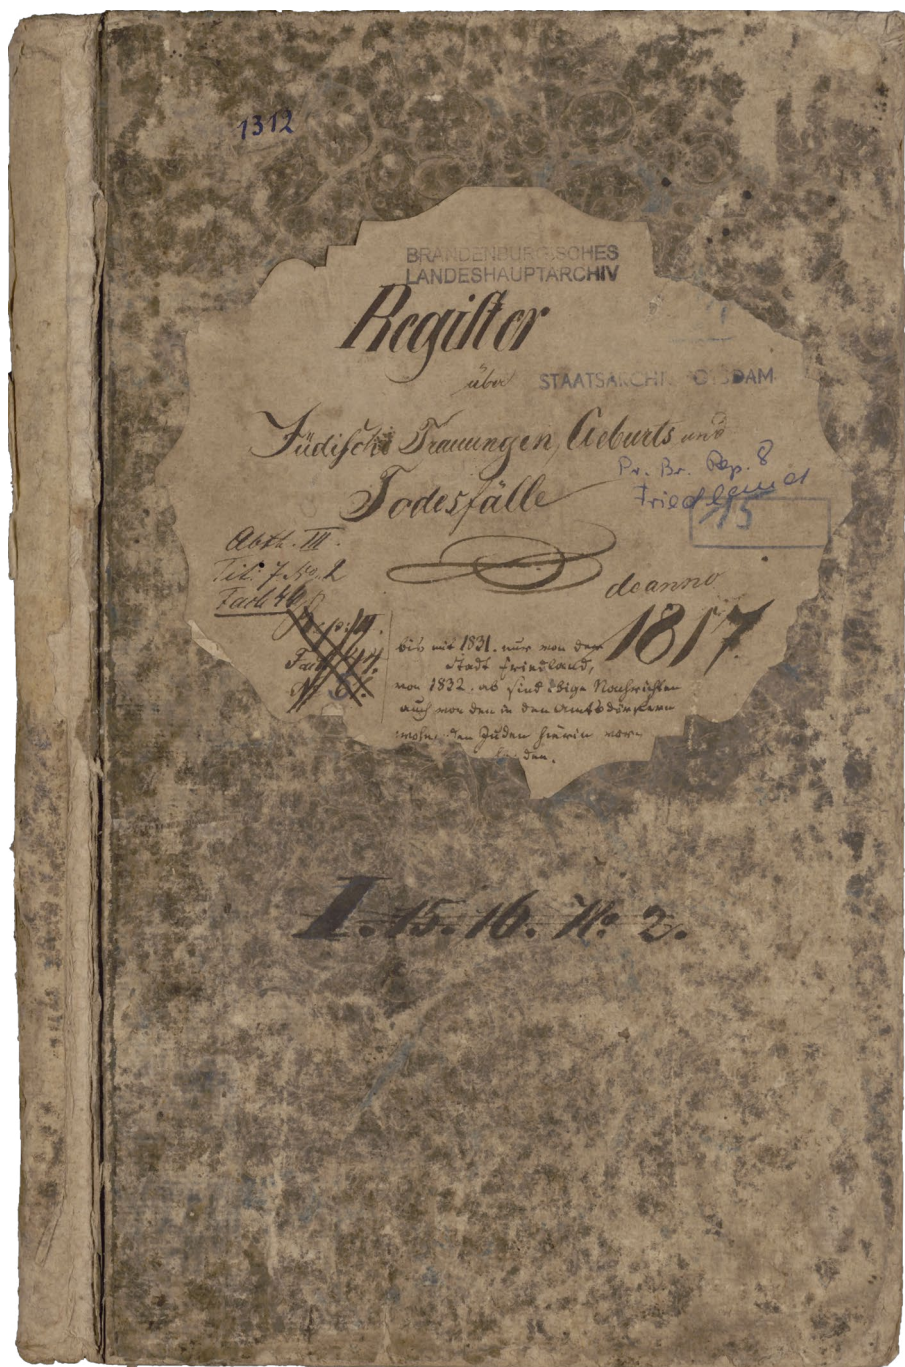 1312
BRANDENBURGISCHES
LANDESHAUPTARCHIV
Register
über
STAATSARCHIV POTSDAM
Jüdische Trauungen, Geburts und
Todesfälle
Pr. Br. Rep. 8
Friedland
15
Abth. III.
Tit. 7. No. 2
Fach 46
de anno
1817
bis mit 1831. nur von der
Stadt Friedland,
von 1832. ab sind obige Nachrichten
auch von den in den Amtsdörfern
wohnenden Juden hierin
I. 15. 16. No. 2.